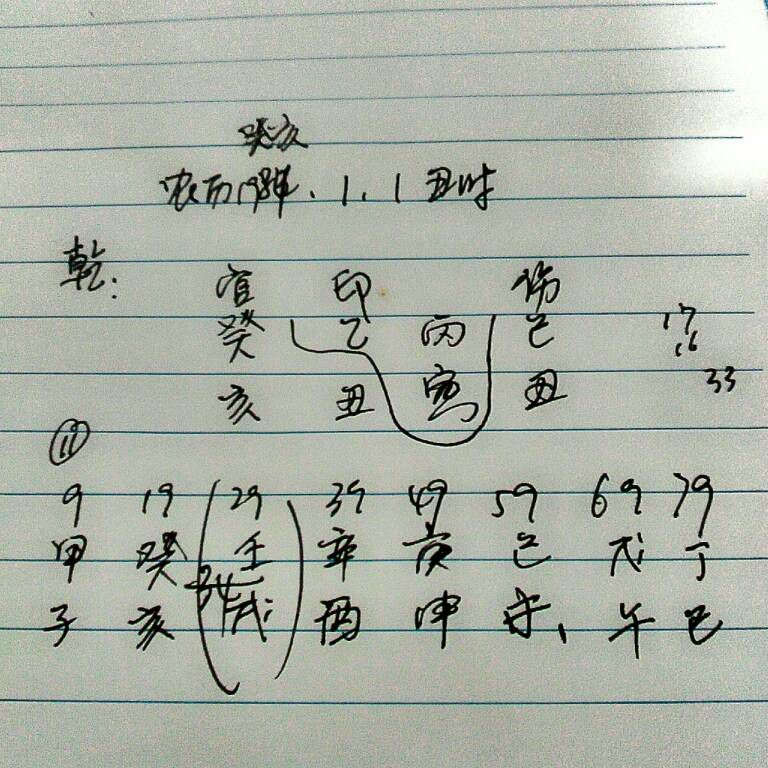 癸亥
农历1983年、1、1 丑时
乾:
官 印 伤
癸 乙 丙 己 17
16
亥 丑 寅 丑 33
⑪
9 19 29 39 49 59 69 79
甲 癸 壬 辛 庚 己 戊 丁
34
子 亥 戌 酉 申 未、 午 巳